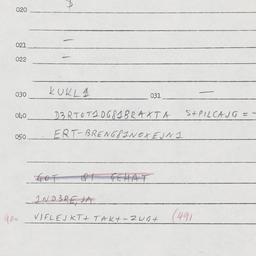 020
021 —
022 —
030 KUKL1 031 —
040 D3RTOT1DG81BRAXTA S+PILCAJG = -
050 ERT-BRENG81NOXEJN1
GOT 81 GEHAT
1ND3RE,JA
900 VIFLEJKT+ TAKT-ZUG+ (49)